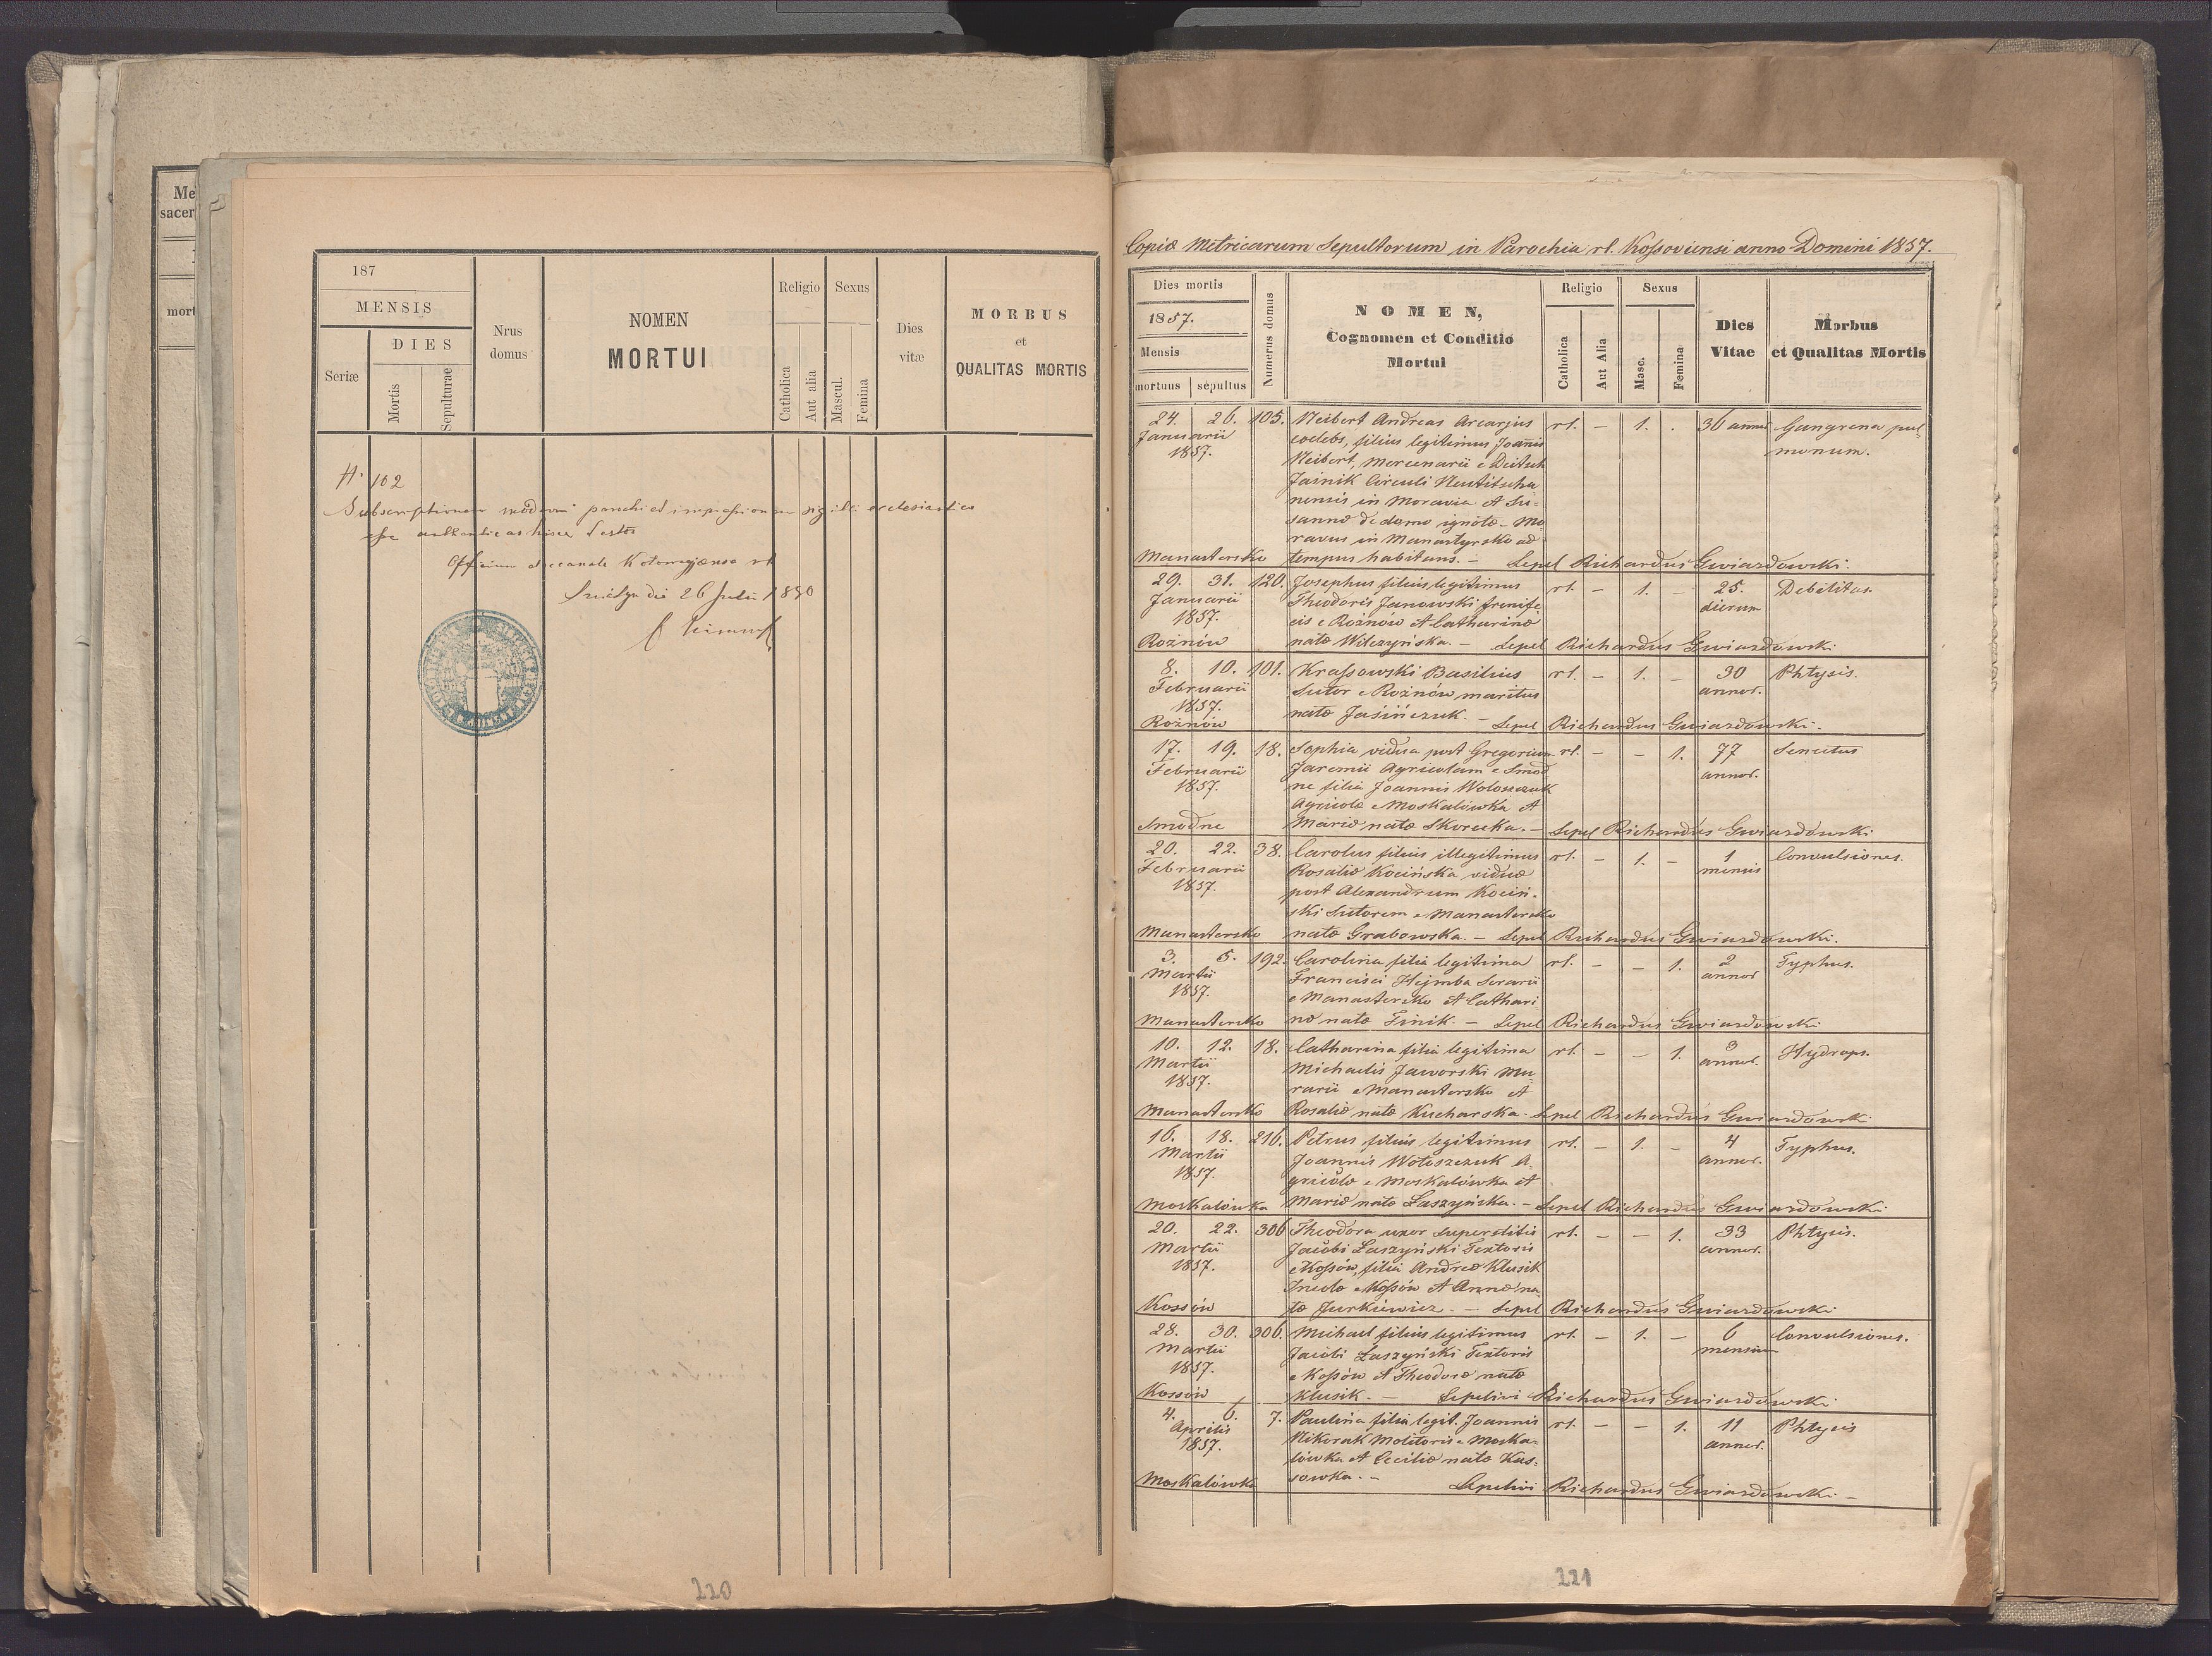 Me
sacer
mort
187
MENSIS
DIES
Seriæ
Mortis
Sepulturae
Nrus
domus
NOMEN
MORTUI
Religio
Sexus
Catholica
Aut alia
Mascul.
Femina
Dies
vitæ
MORBUS
et
QUALITAS MORTIS
N. 102
Subscriptionem moderni parochi et impressionem sigilli ecclesiastici
esse authenticas hisce testor
Officium decanale rl
die 26 Julii 1890
220
Copiæ Metricarum Sepultorum in Parochia rl. Koſsoviensi anno Domini 1857.
Dies mortis
1857.
Mensis
mortuus sepultus
Numerus domus
NOMEN,
Cognomen et Conditio
Mortui
Religio
Catholica
Aut Alia
Sexus
Masc.
Femina
Dies
Vitae
Morbus
et Qualitas Mortis
24. 26. 105. Neibert Andreas rl. – 1. . 36 annor. Gangrena pul-
Januarii coelebs, filius legitimus Joannis monum.
1857. Neibert, Mercenarii e Deutsch
Jasnik Circuli Neutitscha
nensis in Moravia et Su-
sannæ de domo ignotæ – Mo
ravus in Manastyrsko ad
Manastersko tempus habitans. – Sepel Richardus Gwiazdowski.
29. 31. 120. Josephus filius legitimus rl. – 1. – 25. Debilitas.
Januarii Theodoris Janowski frenife dierum
1857. cis e Rożnów et Catharinæ
Rożnów natæ Wilczyńska. – Sepel Richardus Gwiazdowski
8. 10. 101. Kraſsowski Basilius rl. – 1. – 30 Phtysis.
Februarii Sutor e Rożnów maritus annor.
1857. natæ Jasińczuk. – Sepel Richardus Gwiazdowski.
Rożnów
17. 19. 18. Sophia vidua post Gregorium rl. – – 1. 77 Senectus
Februarii Jaremii Agricolam e Smod annor.
1857. ne filia Joannis Wołoszczuk
Agricolæ e Moskalówka et
Smodne Mariæ natæ Skorecka. – Sepel Richardus Gwiazdowski
20. 22. 38. Carolus filius illegitimus rl. – 1. – 1 Convulsiones.
Februarii Rosaliæ Kocińska viduæ mensis
1857. post Alexandrum Kociń-
ski Sutorem e Manastersko
Manastersko natæ Grabowska. – Sepel Richardus Gwiazdowski.
3. 5. 192. Carolina filia legitima rl. – – 1. 2 Typhus.
Martii Francisci Hejmba Serarii annor
1857. e Manastersko et Cathari
Manastersko næ natæ Finik. – Sepel Richardus Gwiazdowski
10. 12. 18. Catharina filia legitima rl. – – 1. 3 Hydrops.
Martii Michaelis Jaworski Mu annor.
1857. rarii e Manastersko et
Manastersko Rosaliæ natæ Kucharska. Sepel Richardus Gwiazdowski
16. 18. 216. Petrus filius legitimus rl. – 1. – 4 Typhus.
Martii Joannis Wołoszczuk A- annor.
1857. gricolæ e Moskalówka et
Moskalówka Mariæ natæ Łaszyńska. – Sepel Richardus Gwiazdowski
20. 22. 306 Theodora uxor superstitis rl. – – 1. 33 Phtysis.
Martii Jacobi Łaszyński Textoris annor.
1857. e Koſsów, filia Andreæ Klusik
Incolæ e Koſsów et Annæ na
Kossów tæ Jurkiewicz. – Sepel Richardus Gwiazdowski
28. 30. 306. Michael filius legitimus rl. – 1. – 6 Convulsiones.
Martii Jacobi Łaszyński Textoris mensium
1857. e Koſsów et Theodoræ natæ
Kossów Klusik. – Sepelivi Richardus Gwiazdowski
4. 6. 7. Paulina filia legit. Joannis rl. – – 1. 11 Phtysis
Aprilis Nikorak Molitoris e Moska- annor.
1857. lówka et Ceciliæ natæ Kus-
Moskalówka sowka. – Sepelivi Richardus Gwiazdowski –
221